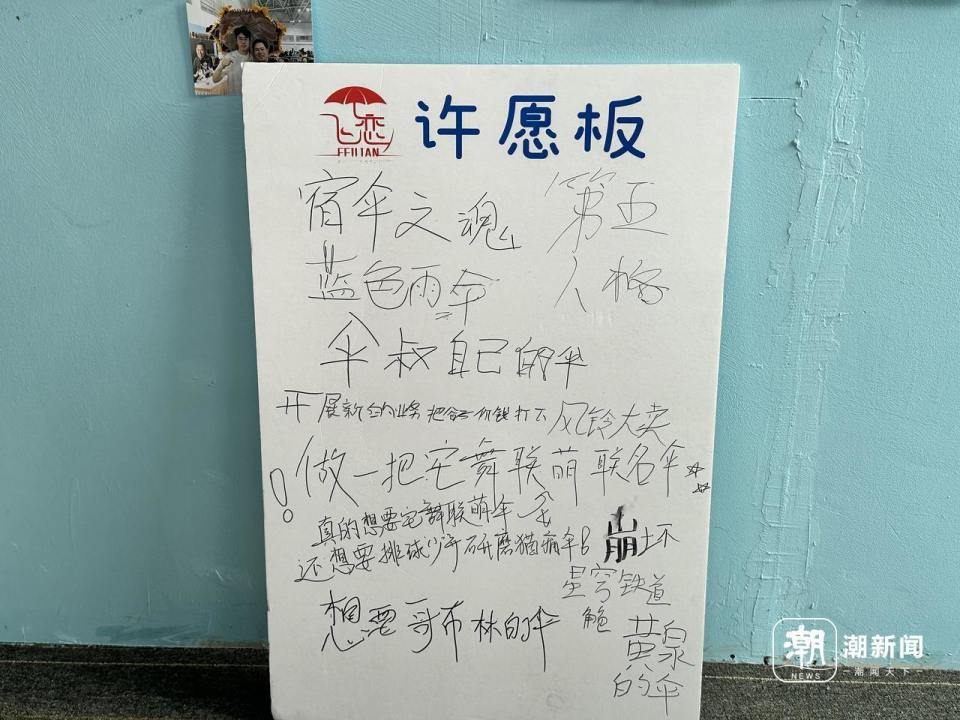 飞恋
FEILIAN
许愿板
宿伞之魂
第五
人格
蓝色雨伞
伞叔自己的伞
开展新的业务把盒子价钱打下
风铃大卖
！做一把宅舞联萌联名伞
真的想要宅舞联萌伞
还想要排球少年研磨猫痛伞
崩坏
星穹铁道
想要哥布林的伞
黄泉
的伞
潮
NEWS
潮新闻
潮闻天下